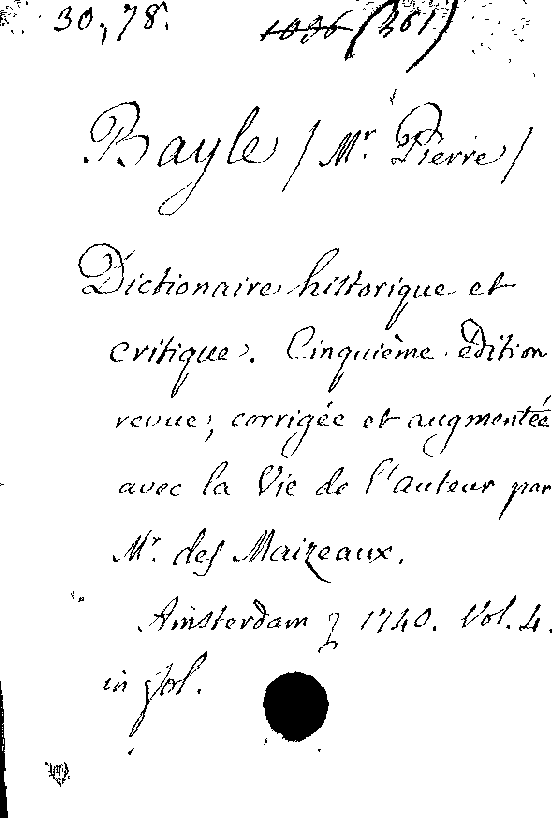 30,78. 1036 (361)
Bayle / Mr. Pierre /
Dictionaire historique et
critique. Cinquième édition
revue, corrigée et augmentée
avec la Vie de l'auteur par
Mr. des Maizeaux.
Amsterdam 1740. Vol. 4.
in fol.